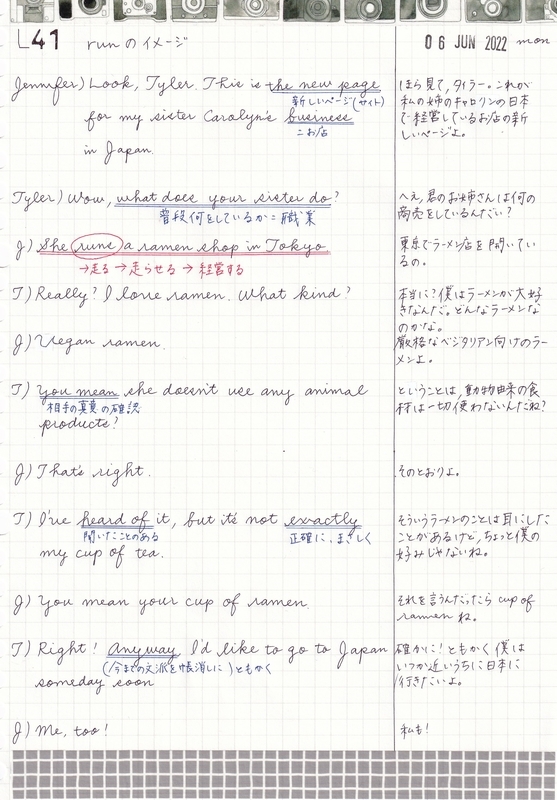 L41 runのイメージ
06 JUN 2022 mon
Jennifer) Look, Tyler. This is the new page
新しいページ(サイト)
for my sister Carolyn's business
=お店
in Japan.
ほら見て, タイラー。これが
私の姉のキャロリンの日本
で経営しているお店の新
しいページよ。
Tyler) Wow, what does your sister do?
普段何をしているか=職業
へえ, 君のお姉さんは何の
商売をしているんだい?
J) She runs a ramen shop in Tokyo
→走る→走らせる→経営する
東京でラーメン店を開いてい
るの。
T) Really? I love ramen. What kind?
本当に?僕はラーメンが大好
きなんだ。どんなラーメンな
のかな。
J) Vegan ramen.
厳格なベジタリアン向けのラー
メンよ。
T) You mean she doesn't use any animal
相手の真意の確認
products?
ということは, 動物由来の食
材は一切使わないんだね?
J) That's right.
そのとおりよ。
T) I've heard of it, but it's not exactly
聞いたことのある 正確に、まさしく
my cup of tea.
そういうラーメンのことは耳にした
ことがあるけど, ちょっと僕の
好みじゃないね。
J) You mean your cup of ramen.
それを言うんだったら cup of
ramen ね。
T) Right! Anyway I'd like to go to Japan
(今までの文派を帳消しに)ともかく
someday soon
確かに!ともかく僕は
いつか近いうちに日本に
行きたいよ。
J) Me, too!
私も!